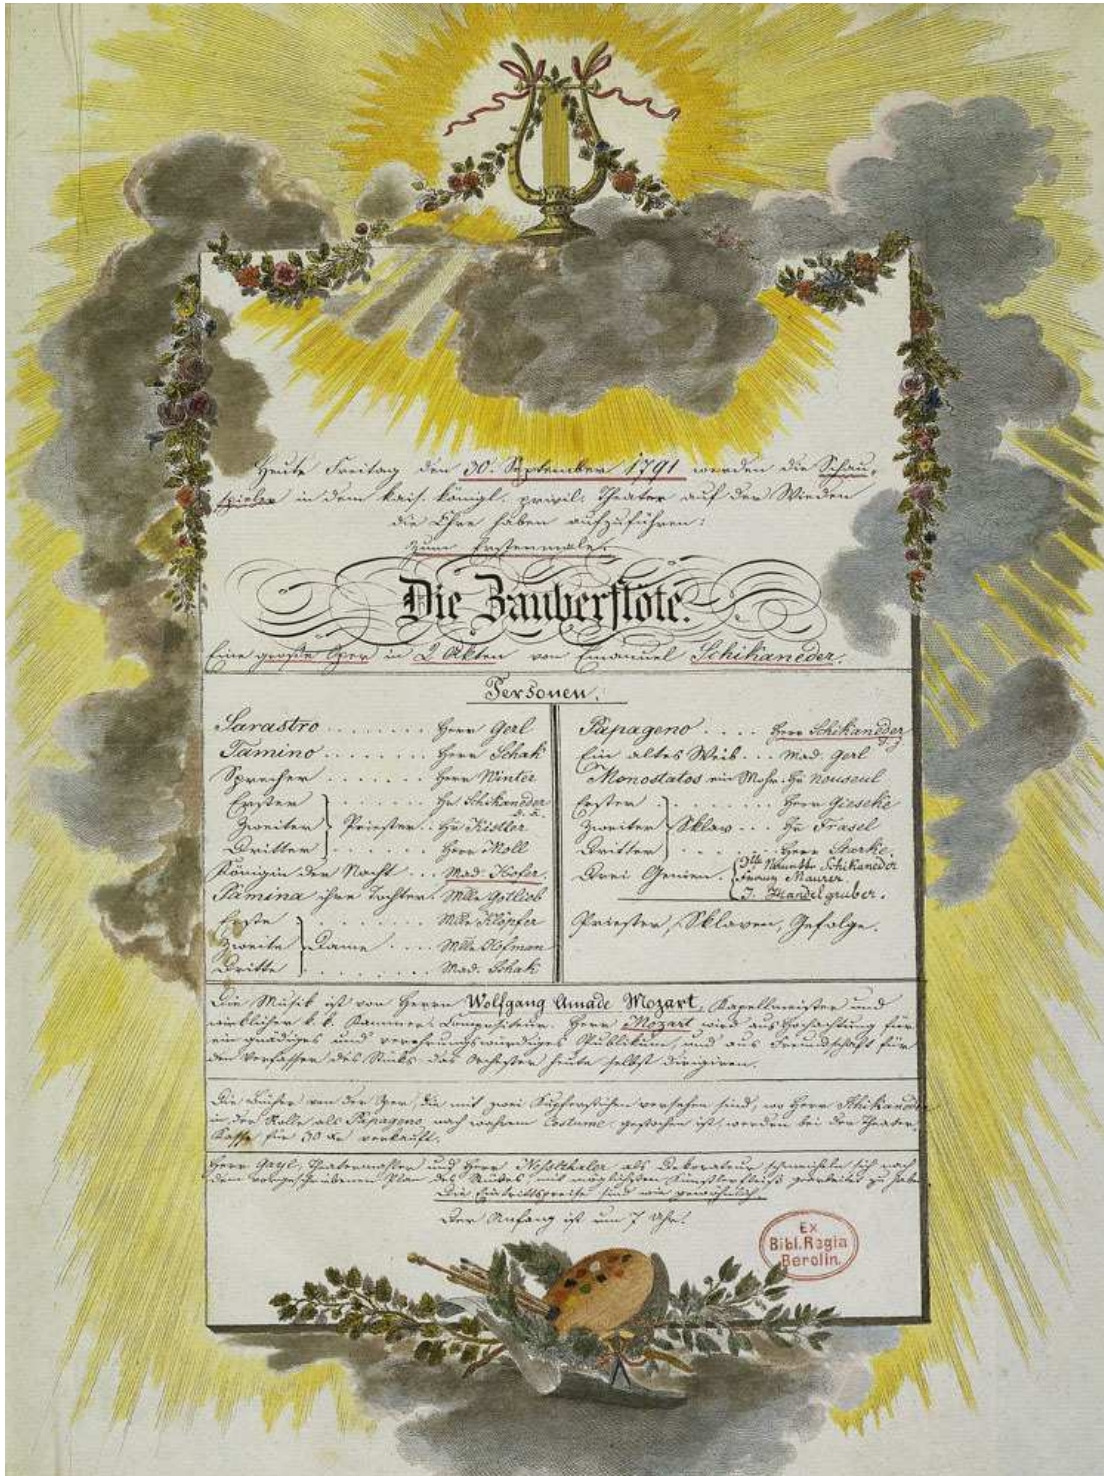 Heute Freitag den 30ten September 1791 werden die Schau-
spieler in dem kais. königl. privil. Theater auf der Wieden
die Ehre haben aufzuführen:
Zum Erstenmale:
Die Zauberflöte.
Eine große Oper in 2 Akten von Emanuel Schikaneder.
Personen.
Sarastro . . . . . . . . Herr Gerl
Tamino . . . . . . . . Herr Schak
Sprecher . . . . . . . Herr Winter
Erster } . . . . . . Hr Schikaneder
d. ä.
Zweiter } Priester . . Hr Kistler
Dritter } . . . . . . Herr Moll
Königin der Nacht . . . Mad. Hofer.
Pamina ihre Tochter. Mlle Gotlieb
Erste } . . . . . . . Mlle Klöpfer
Zweite } Dame . . . . Mlle Hofman
Dritte } . . . . . . . Mad. Schak
Papageno . . . . Herr Schikaneder
d. j.
Ein altes Weib . . . Mad. Gerl
Monostatos ein Mohr. Hr Nouseul
Erster } . . . . . . . Herr Gieseke
Zweiter } Sklav . . . Hr Frasel
Dritter } . . . . . . . Herr Starke.
Drei Genien. { Schikaneder
Franz Maurer.
J. Handelgruber.
Priester, Sklaven, Gefolge.
Die Musik ist von Herrn Wolfgang Amade Mozart, Kapellmeister und
wirklicher k. k. Kammer-Compositeur. Herr Mozart wird aus Hochachtung für
ein gnädiges und verehrungswürdiges Publikum, und aus Freundschaft für
den Verfasser des Stüks das Orchester heute selbst dirigiren.
Die Bücher von der Oper, die mit zwei Kupferstichen versehen sind, wo Herr Schikaneder
in der Rolle als Papageno nach wahrem Costume gestochen ist, werden bei der Theater
Kasse für 30 xr verkauft.
Herr Gayl, Theatermahler und Herr Neßlthaler als Dekorateur schmeicheln sich nach
dem vorgeschriebenen Plan des Stückes, mit möglichstem Künstlerfleiß gearbeitet zu haben
Die Eintrittspreise sind wie gewöhnlich.
Der Anfang ist um 7 Uhr.
Ex
Bibl. Regia
Berolin.